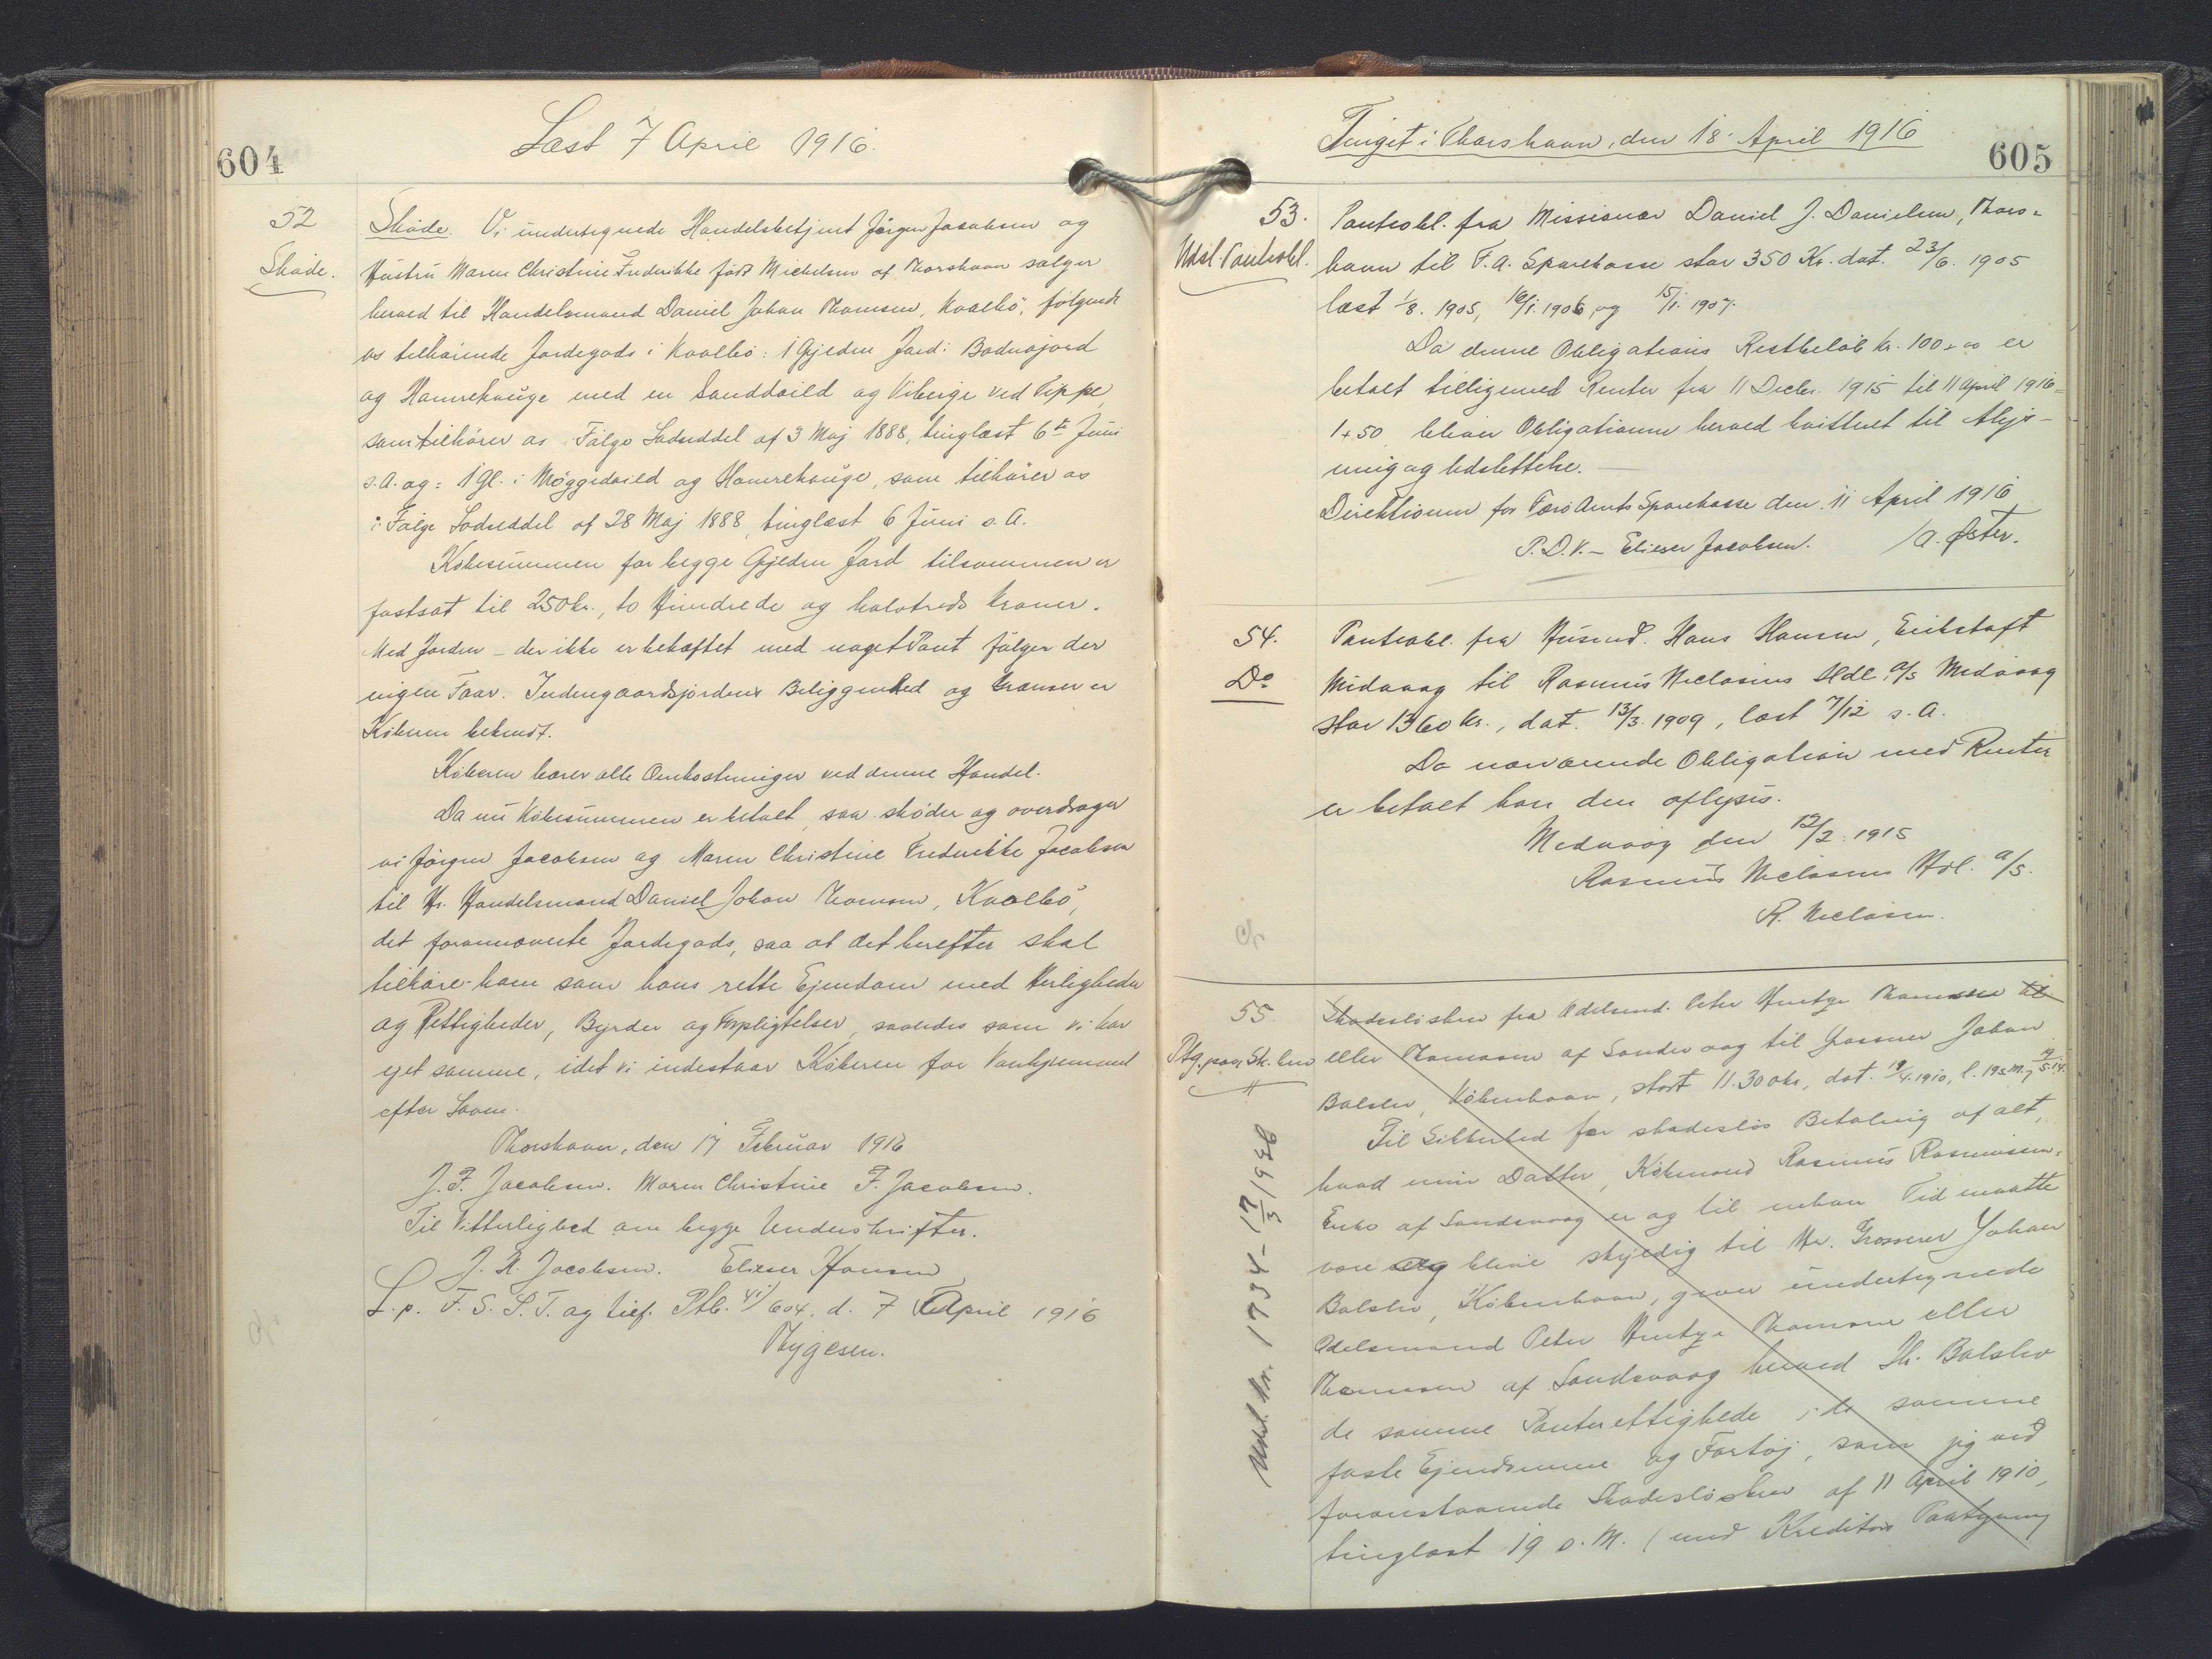 604
Læst 7 April 1916.
52
Skøde.
Skøde. Vi undertegnede Handelsbetjent Jørgen Jacobsen og
Hustru Maren Christine Frederikke født Michelsen af Thorshavn sælger
herved til Handelsmand Daniel Johan Thomsen, Kvalbø, følgende
os tilhørende Jordegods i Kvalbø: 1 Gylden Jord i Bodnajord
og Hamrehauge med en Sanddeild og Viberge ved Tippe,
som tilhører os i Følge Lodseddel af 3 Maj 1888, tinglæst 6te Juni
s.A. og: 1 Gl. i Møggedeild og Hamrehauge, som tilhører os
i Følge Lodseddel af 28 Maj 1888, tinglæst 6 Juni s.A.
Købesummen for begge Gylden Jord tilsammen er
fastsat til 250 kr., to Hundrede og halvtreds Kroner.
Med Jorden – der ikke er behæftet med noget Pant følger der
ingen Faar. Indengaardsjordens Beliggenhed og Grænser er
Køberen bekendt.
Køberen bærer alle Omkostninger ved denne Handel.
Da nu Købesummen er betalt, saa skøder og overdrager
vi Jørgen Jacobsen og Maren Christine Frederikke Jacobsen
til Hr. Handelsmand Daniel Johan Thomsen, Kvalbø,
det forannævnte Jordegods, saa at det herefter skal
tilhøre ham som hans rette Ejendom med Herligheder
og Rettigheder, Byrder og Forpligtelser, saaledes som vi har
ejet samme, idet vi indestaar Køberen for Vanhjemmel
efter Loven.
Thorshavn, den 17 Februar 1916
J. F. Jacobsen. Maren Christine F. Jacobsen.
Til Vitterlighed om begge Underskrifter.
J. R. Jacobsen. Elieser Hansen
L. p. F. S. S. T. og tief. Ptb. 41/604. d. 7 April 1916
Thygesen.
Tinget i Thorshavn, den 18 April 1916
605
53.
Udsl. Panteobl.
Panteobl. fra Missionær Daniel J. Danielsen, Thors-
havn til F. A. Sparekasse stor 350 Kr. dat. 23/6. 1905
læst 1/8. 1905, 16/1. 1906, og 15/1. 1907.
Da denne Obligations Restbeløb Kr. 100 + 00 er
betalt tilligemed Renter fra 11 Decbr. 1915 til 11 April 1916 =
1 + 50, bliver Obligationen herved kvitteret til Aflys-
ning og Udslettelse.
Direktionen for Færø Amts Sparekasse den 11 April 1916
P.D.V. – Elieser Jacobsen. / A. Øster.
54.
Do
Panteobl. fra Husmd. Hans Hansen, Erikstoft
Midvaag til Rasmus Niclasens Hdl. A/S Midvaag
stor 1360 kr., dat. 13/3. 1909, læst 7/12 s.A.
Da nærværende Obligation med Renter
er betalt kan den aflyses.
Midvaag den 12/2. 1915
Rasmus Niclasens Hdl. A/S.
R. Niclasen.
55.
Ptg. paa Sk. brev
Skadesløsbrev fra Odelsmd. Peter Hentze Thomsen til
eller Thomasen af Sandevaag til Grosserer Johan
Balslev, København, stort 11.300 kr., dat. 11/4. 1910, l. 19 s.M., 19/5.14.
Til Sikkerhed for skadesløs Betaling af alt,
hvad min Datter, Købmand Rasmus Rasmussens
Enke af Sandevaag er og til enhver Tid maatte
være og blive skyldig til Hr. Grosserer Johan
Balslev, København, giver undertegnede
Odelsmand Peter Hentze Thomsen eller
Thomasen af Sandevaag herved Hr. Balslev
de samme Panterettigheder i de samme
faste Ejendomme og Fartøj, som jeg ved
foranstaaende Skadesløsbrev af 11 April 1910,
tinglæst 19 s.M. (med Kreditors Pantgivning
Udsl. Nr. 1734 – 17/3 1936